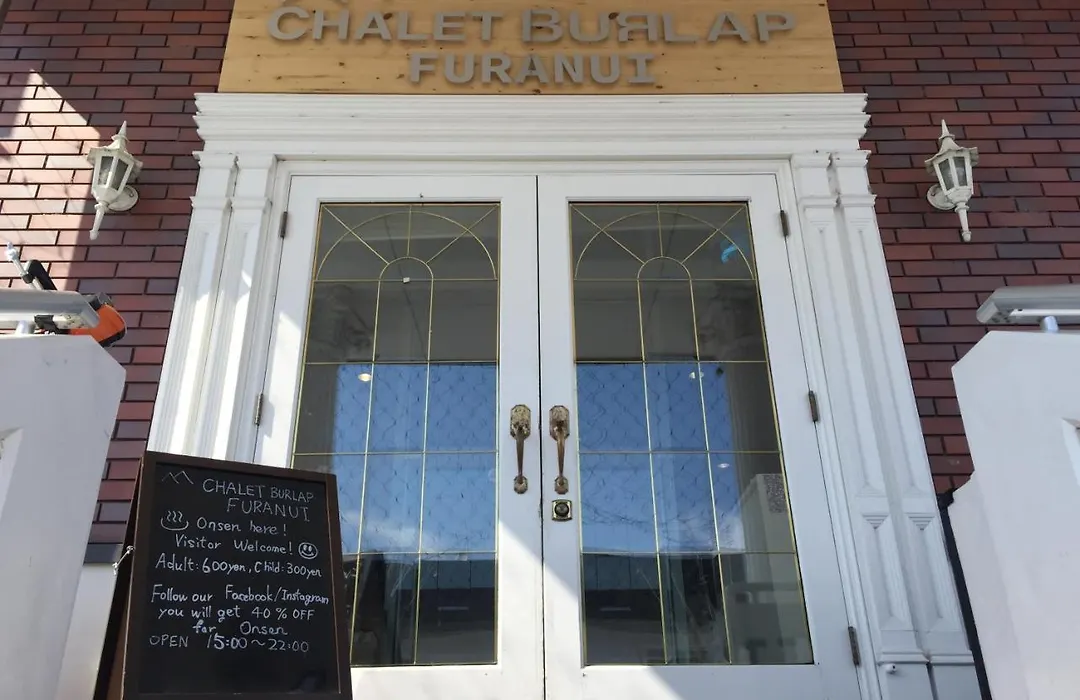 CHALET BURLAP
FURANUI
CHALET BURLAP
FURANUI
Onsen here!
Visitor Welcome!
Adult: 600yen, Child: 300yen
Follow our Facebook/Instagram
you will get 40% OFF
for Onsen
OPEN 15:00~22:00